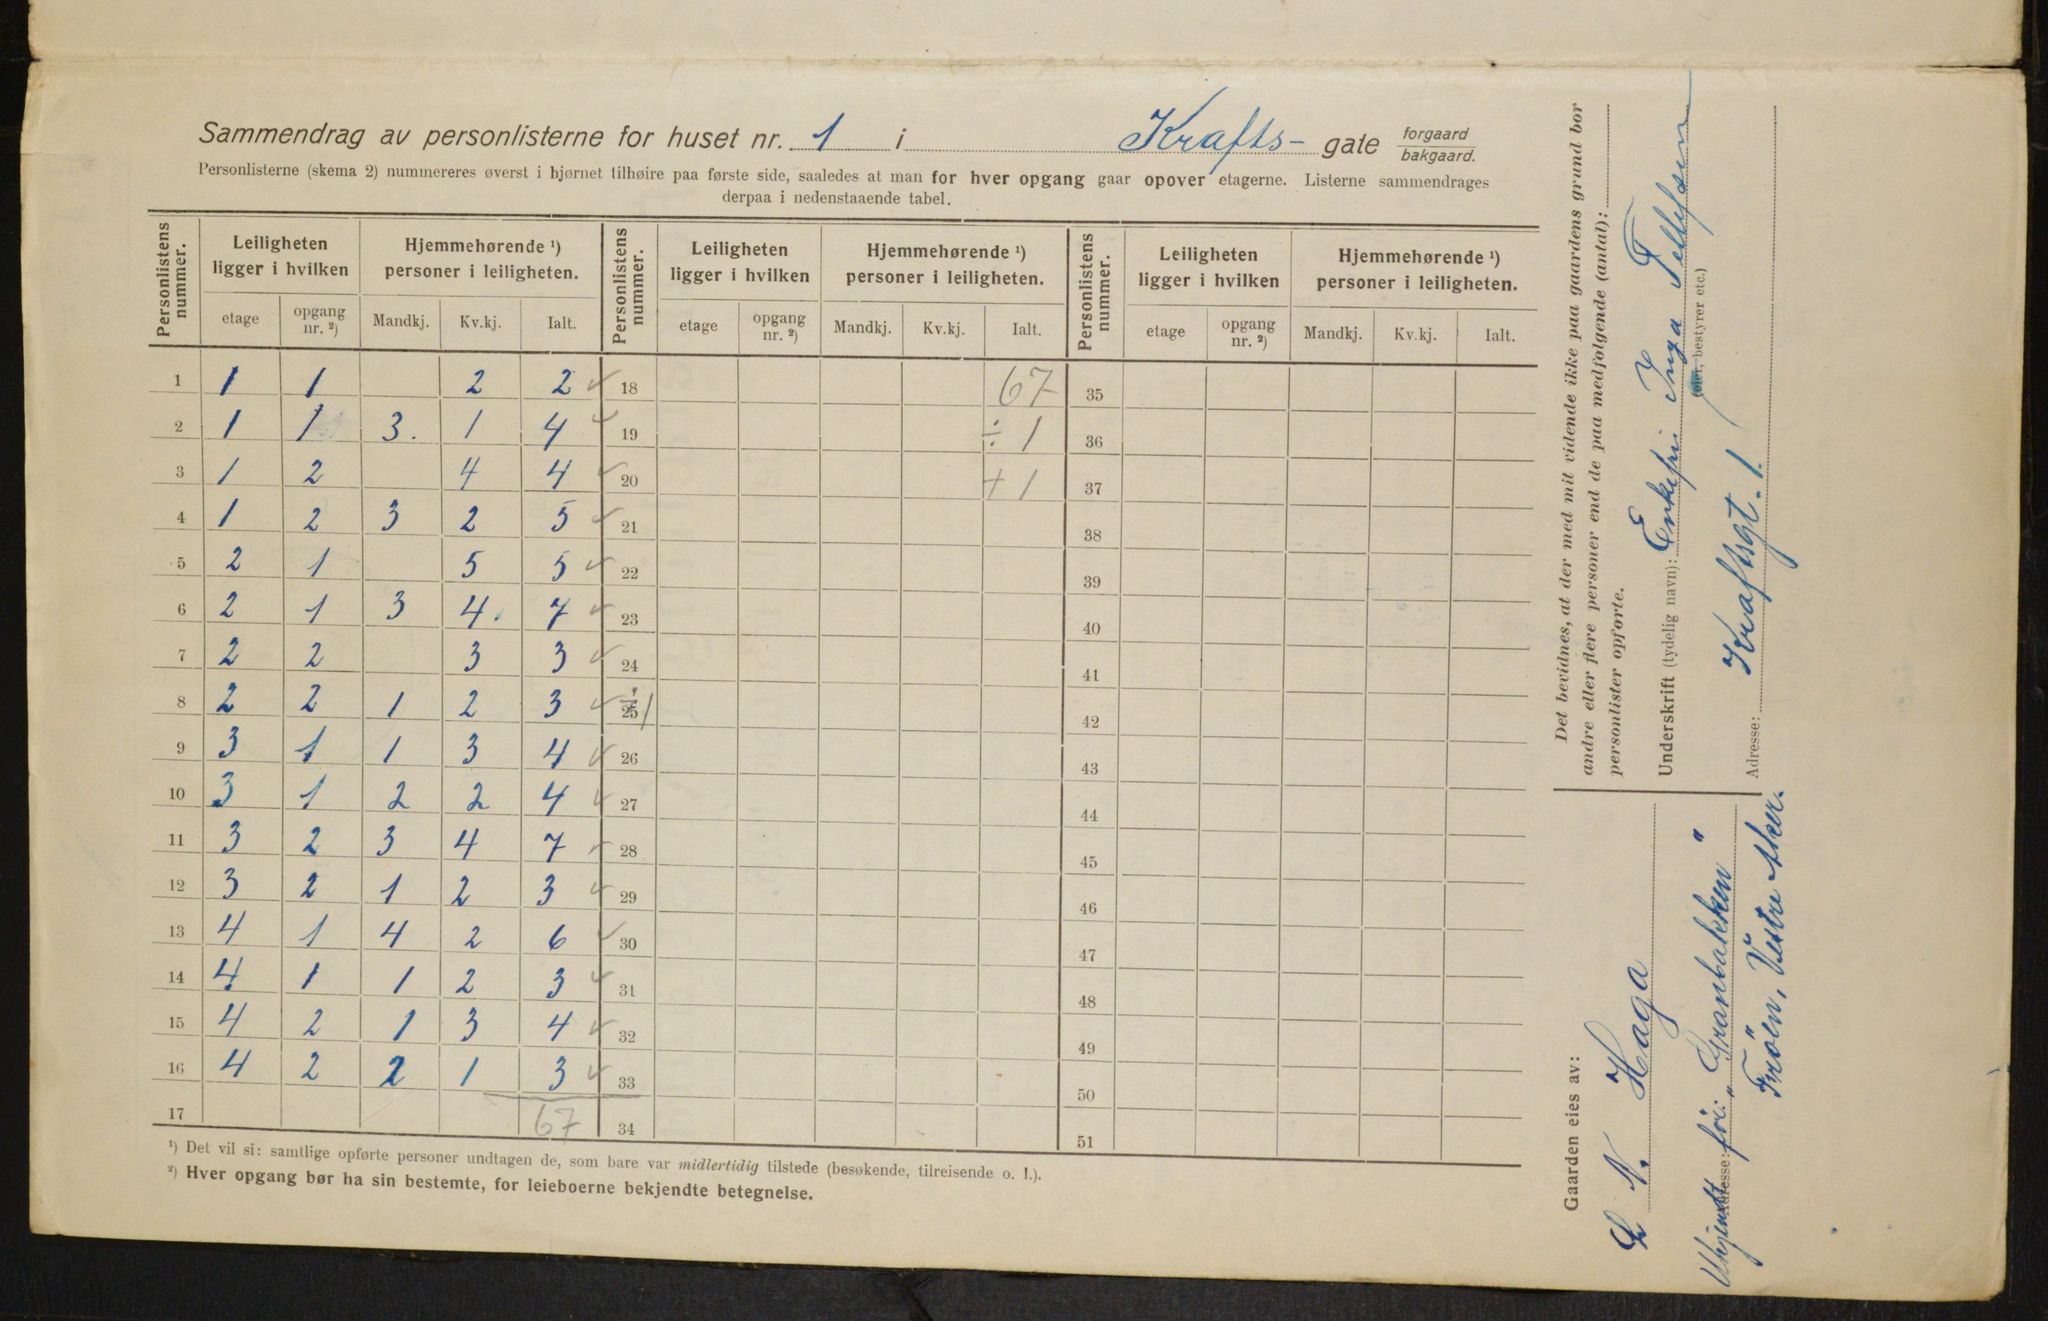 Sammendrag av personlisterne for huset nr. 1 i Krafts- gate forgaard bakgaard.
Personlisterne (skema 2) nummereres øverst i hjørnet tilhøire paa første side, saaledes at man for hver opgang gaar opover etagerne. Listerne sammendrages
derpaa i nedenstaaende tabel.
Personlistens nummer. Leiligheten ligger i hvilken Hjemmehørende ¹) personer i leiligheten. Personlistens nummer. Leiligheten ligger i hvilken Hjemmehørende ¹) personer i leiligheten. Personlistens nummer. Leiligheten ligger i hvilken Hjemmehørende ¹) personer i leiligheten.
etage opgang nr. ²) Mandkj. Kv.kj. Ialt. etage opgang nr. ²) Mandkj. Kv.kj. Ialt. etage opgang nr. ²) Mandkj. Kv.kj. Ialt.
1 1 1 2 2 ✓ 18 67 35
2 1 1 3. 1 4 ✓ 19 ÷ 1 36
3 1 2 4 4 ✓ 20 + 1 37
4 1 2 3 2 5 ✓ 21 38
5 2 1 5 5 ✓ 22 39
6 2 1 3 4. 7 ✓ 23 40
7 2 2 3 3 ✓ 24 41
8 2 2 1 2 3 ✓ 25 ÷1 42
9 3 1 1 3 4 ✓ 26 43
10 3 1 2 2 4 ✓ 27 44
11 3 2 3 4 7 ✓ 28 45
12 3 2 1 2 3 ✓ 29 46
13 4 1 4 2 6 ✓ 30 47
14 4 1 1 2 3 ✓ 31 48
15 4 2 1 3 4 ✓ 32 49
16 4 2 2 1 3 ✓ 33 50
17 67 34 51
¹) Det vil si: samtlige opførte personer undtagen de, som bare var midlertidig tilstede (besøkende, tilreisende o. l.).
²) Hver opgang bør ha sin bestemte, for leieboerne bekjendte betegnelse.
Det bevidnes, at der med mit vidende ikke paa gaardens grund bor
andre eller flere personer end de paa medfølgende (antal):
personlister opførte.
Underskrift (tydelig navn): Enkefru Inga Tellefsen
(eier, bestyrer etc.)
Adresse: Kraftsgt. 1.
Gaarden eies av:
L N. Haga
Adresse: "Granbakken"
Frøen, Vestre Aker.